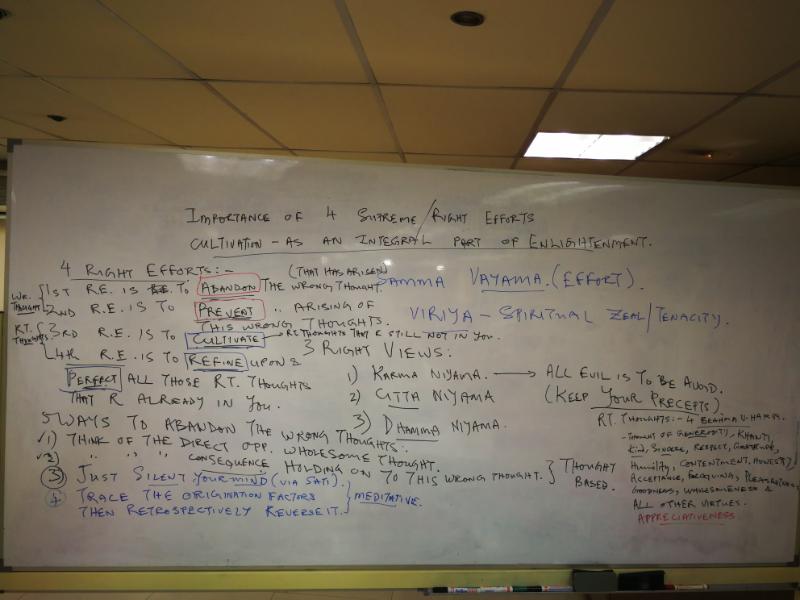 IMPORTANCE OF 4 SUPREME/RIGHT EFFORTS
CULTIVATION - AS AN INTEGRAL PART OF ENLIGHTENMENT.
4 RIGHT EFFORTS:-
(THAT HAS ARISEN)
WR. THOUGHT
1ST R.E. IS TO ABANDON THE WRONG THOUGHT.
2ND R.E. IS TO PREVENT " ARISING OF
THIS WRONG THOUGHTS.
RT. THOUGHTS
3RD R.E. IS TO CULTIVATE → RT. THOUGHTS THAT R STILL NOT IN YOU.
4th R.E. IS TO REFINE UPON &
PERFECT ALL THOSE RT. THOUGHTS
THAT R ALREADY IN YOU.
SAMMA VAYAMA. (EFFORT).
VIRIYA - SPIRITUAL ZEAL/TENACITY.
3 RIGHT VIEWS:
1) KARMA NIYAMA. → ALL EVIL IS TO BE AVOID.
2) CITTA NIYAMA (KEEP YOUR PRECEPTS)
3) DHAMMA NIYAMA.
5 WAYS TO ABANDON THE WRONG THOUGHTS:-
1) THINK OF THE DIRECT OPP. WHOLESOME THOUGHT.
2) " " " CONSEQUENCE HOLDING ON TO THIS WRONG THOUGHT.
} THOUGHT BASED.
3) JUST SILENT YOUR MIND (VIA SATI).
4 TRACE THE ORIGINATION FACTORS
THEN RETROSPECTIVELY REVERSE IT.
} MEDITATIVE.
RT. THOUGHTS:- 4 BRAHMA V-HARAS.
- THOUGHT OF GENEROSITY, KHANTI,
KIND, SINCERE, RESPECT, GRATITUDE,
HUMILITY, CONTENTMENT, HONESTY,
ACCEPTANCE,
GOODNESS, WHOLESOMENESS &
ALL OTHER VIRTUES.
APPRECIATIVENESS